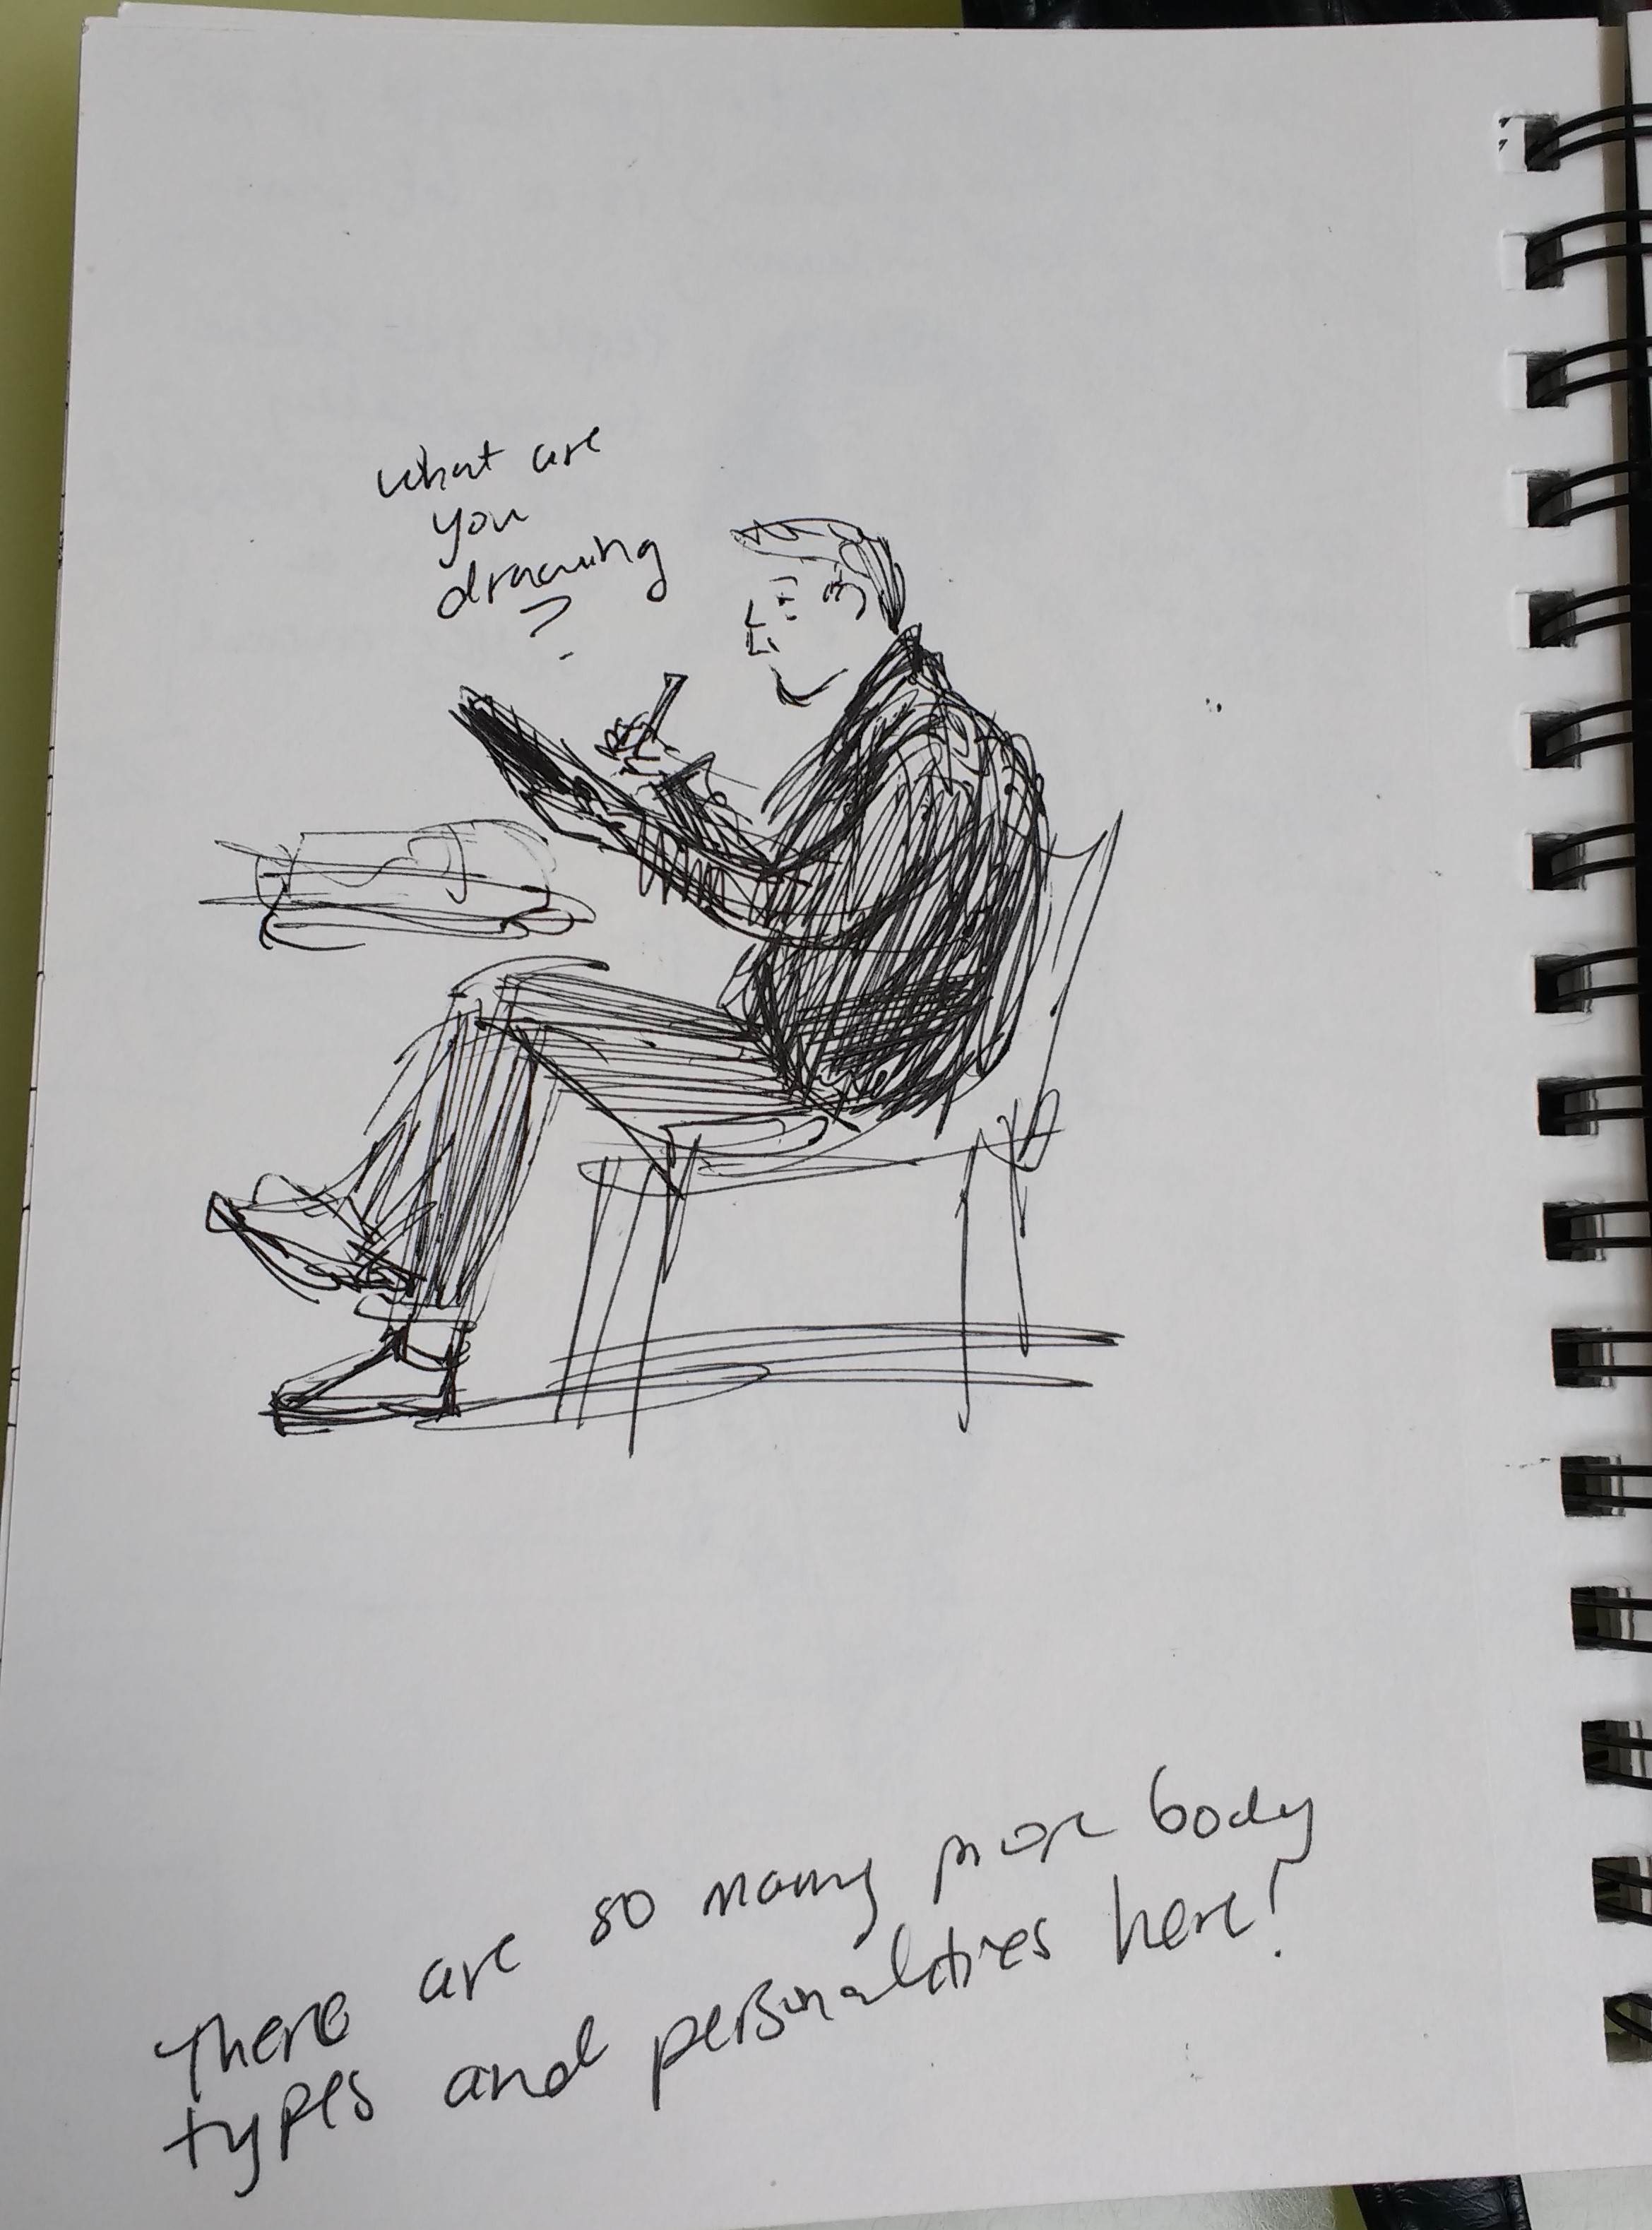 what are
you
drawing
?
There are so many more body
types and personalities here!